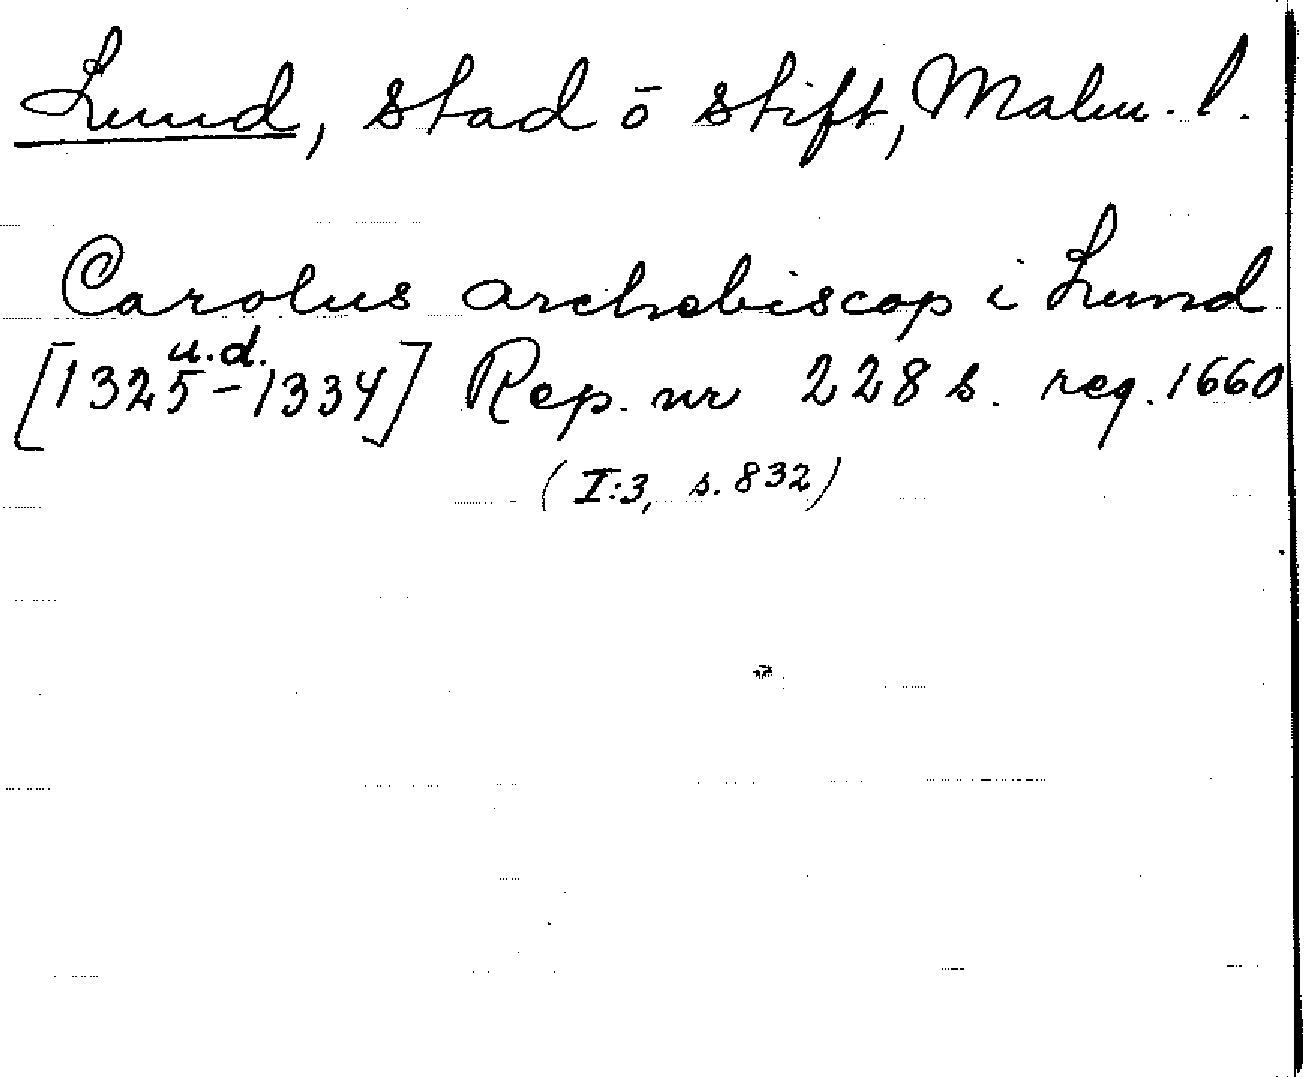 Lund, stad ō stift, Malm. l.
Carolus archebiscop i Lund
u.d.
[1325-1334] Rep. nr 228 s. reg. 1660
(I:3, s. 832)